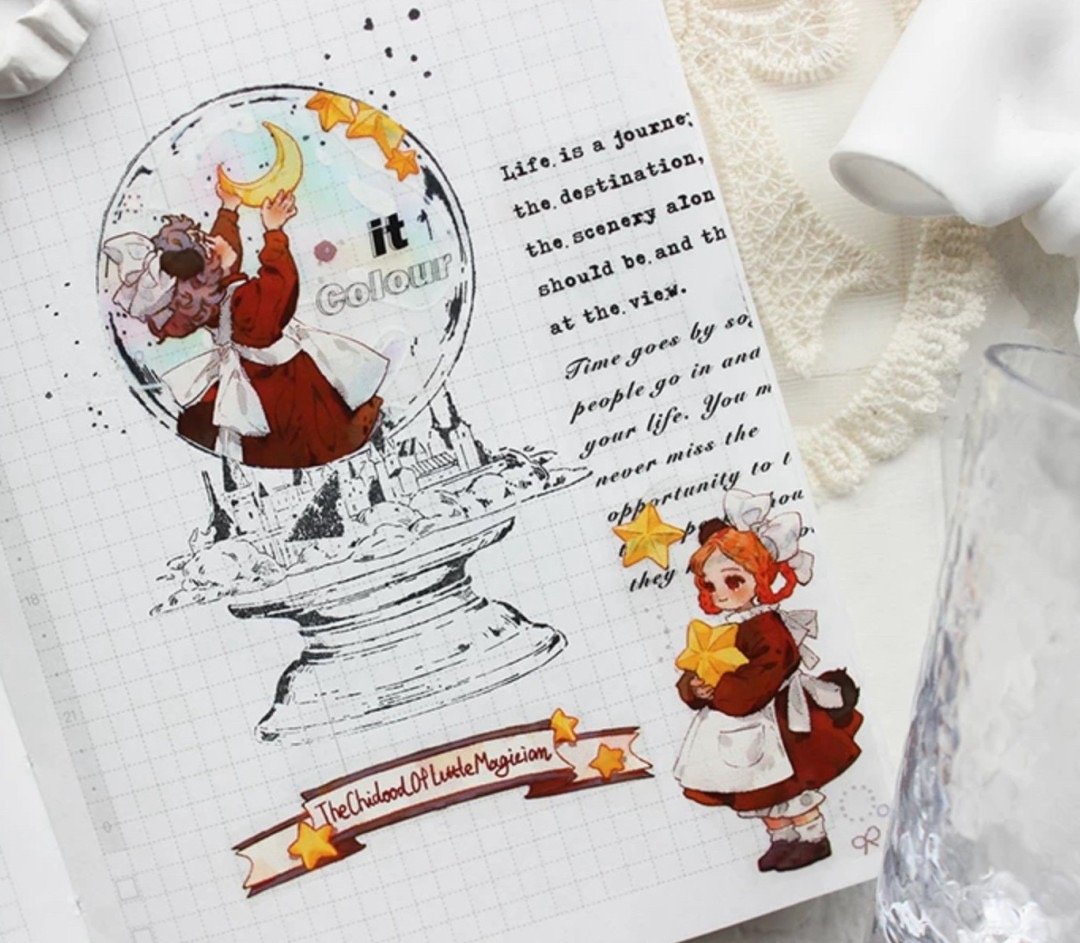 it
Colour
Life is a
the destination,
the scenery
should be and
at the view.
Time goes by
people go in and
your life. You
never miss the
opportunity to
they
TheChidoodOfLittleMagician
18
21